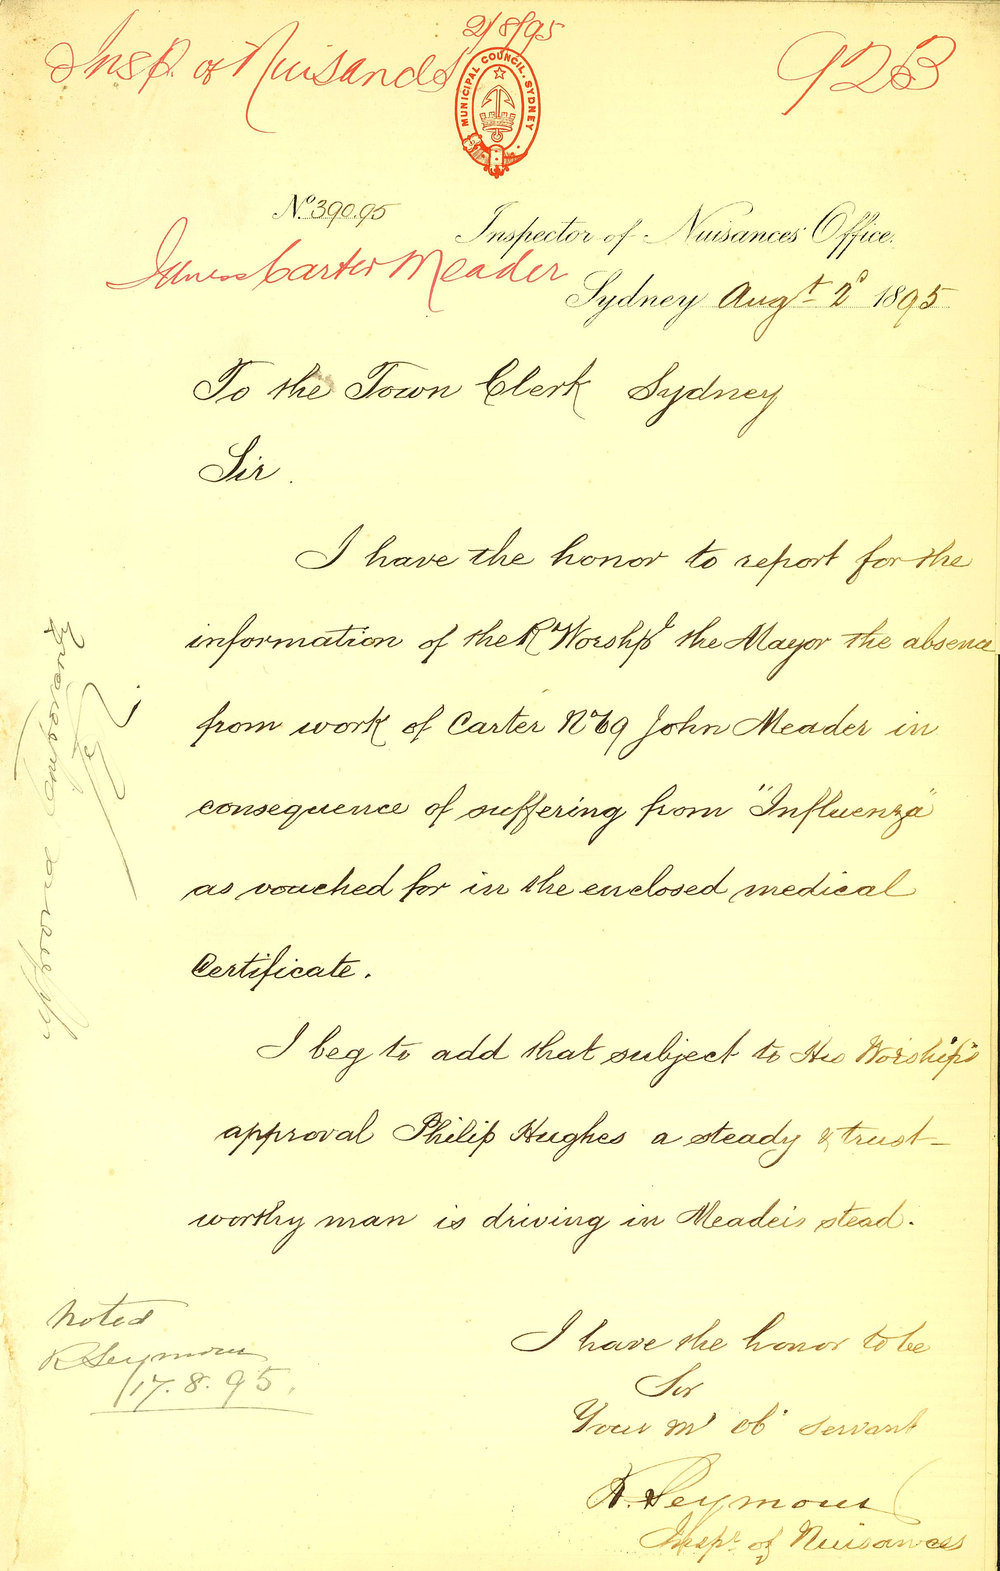 2/8/95
Insp. of Nuisances
923
MUNICIPAL COUNCIL. SYDNEY
No. 390.95
Inspector of Nuisances Office.
Carter Meader
Sydney Augt. 2d 1895
To the Town Clerk Sydney
Sir.
I have the honor to report for the
information of the Rt Worshpl the Mayor the absence
from work of Carter No 69 John Meader in
consequence of suffering from "Influenza"
as vouched for in the enclosed medical
Certificate.
I beg to add that subject to His Worship's
approval Philip Hughes a steady & trust-
worthy man is driving in Meader's stead.
I have the honor to be
Sir
Your mt obt servant
R. Seymour
Inspr. of Nuisances
Noted
R Seymour
17.8.95.